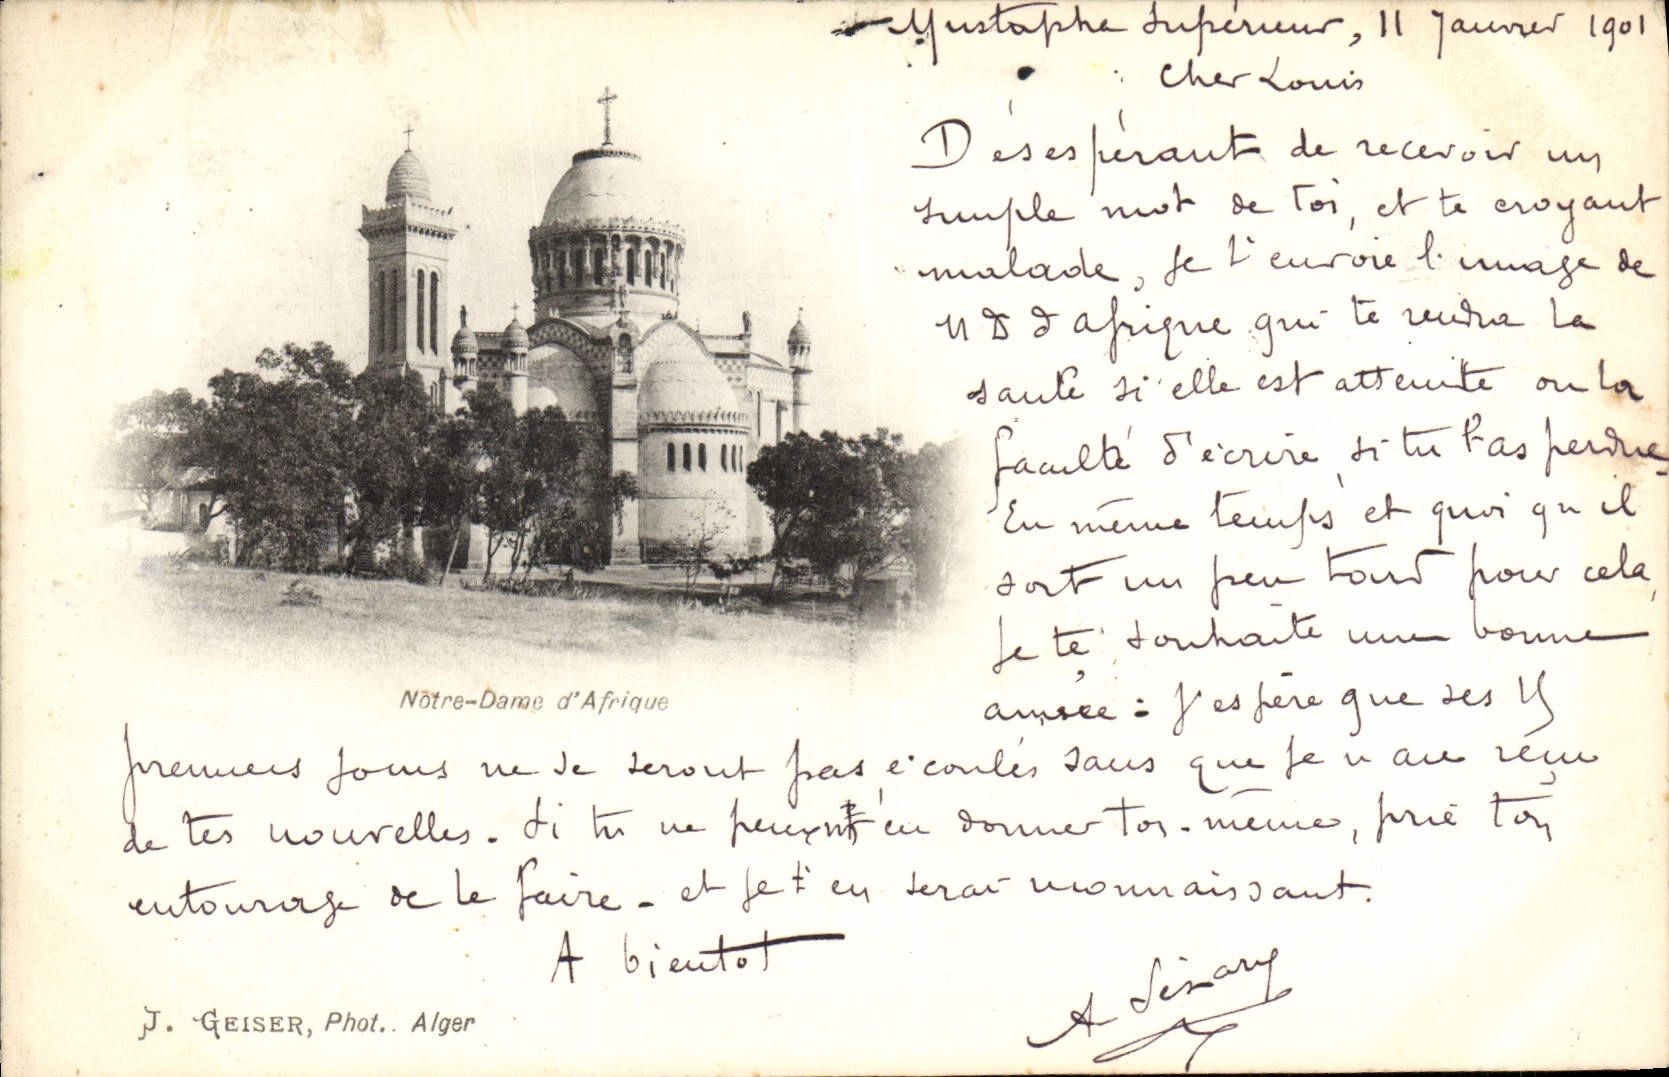 Mustapha Supérieur, 11 Janvier 1901
Cher Louis
Désespérant de recevoir un
simple mot de toi, et te croyant
malade, je t'envoie l'image de
ND d'Afrique qui te rendra la
santé si elle est atteinte ou la
faculté d'écrire si tu l'as perdue.
En même temps et quoi qu'il
soit un peu tard pour cela,
je te souhaite une bonne
année : J'espère que ses 15
premiers jours ne se seront pas écoulés sans que je n'aie reçu
de tes nouvelles. Si tu ne peux en donner toi-même, prie ton
entourage de le faire - et je t'en serai reconnaissant.
A bientot
A
Nôtre-Dame d'Afrique
J. GEISER, Phot.. Alger